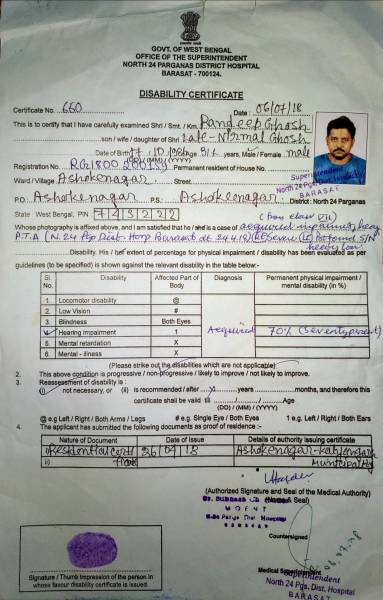 GOVT. OF WEST BENGAL
OFFICE OF THE SUPERINTENDENT
NORTH 24 PARGANAS DISTRICT HOSPITAL
BARASAT - 700124.
DISABILITY CERTIFICATE
Certificate No. 660 Date : 06/07/18
This is to certify that I have carefully examined Shri / Smt. / Km. Randeep Ghosh
son / wife / daughter of Shri Late - Nirmal Ghosh
Date of Birth (DD) / (MM) / (YYYY) years, Male / Female male
Registration No. Permanent resident of House No.
Ward / Village Ashokenagar Street
P.O. Ashokenagar P.S. Ashokenagar District : North 24 Parganas
State West Bengal, PIN 743222
Superintendent
North 24 Pgs. Dist. Hospital
BARASAT
Whose photograph is affixed above, and I am satisfied that he / she is a case of acquired
P.T.A
Disability. His / her extent of percentage for physical impairment / disability has been evaluated as per
guidelines (to be specified) is shown against the relevant disability in the table below:-
Sl. No. Disability Affected Part of Body Diagnosis Permanent physical impairment / mental disability (in %)
1. Locomotor disability @
2. Low Vision #
3. Blindness Both Eyes
4. Hearing impairment 1 Acquired 70% (Seventy percent)
5. Mental retardation X
6. Mental - illness X
(Please strike out the disabilities which are not applicable)
2. This above condition is progressive / non-progressive / likely to improve / not likely to improve.
3. Reassessment of disability is :
(i) not necessary, or (ii) is recommended / after x years months, and therefore this
certificate shall be valid till (DD) / (MM) / (YYYY)
@ e.g Left / Right / Both Arms / Legs # e.g. Single Eye / Both Eyes 1 e.g. Left / Right / Both Ears
4. The applicant has submitted the following documents as proof of residence :-
Nature of Document Date of Issue Details of authority issuing certificate
Residential Certi 26/04/18 Ashokenagar-Kalyangarh
ii) Municipality
(Authorized Signature and Seal of the Medical Authority)
(Name & Seal)
Countersigned
06.07.18
Medical Superintendent
Superintendent
North 24 Pgs. Dist. Hospital
BARASAT
Signature / Thumb Impression of the person in
whose favour disability certificate is issued.